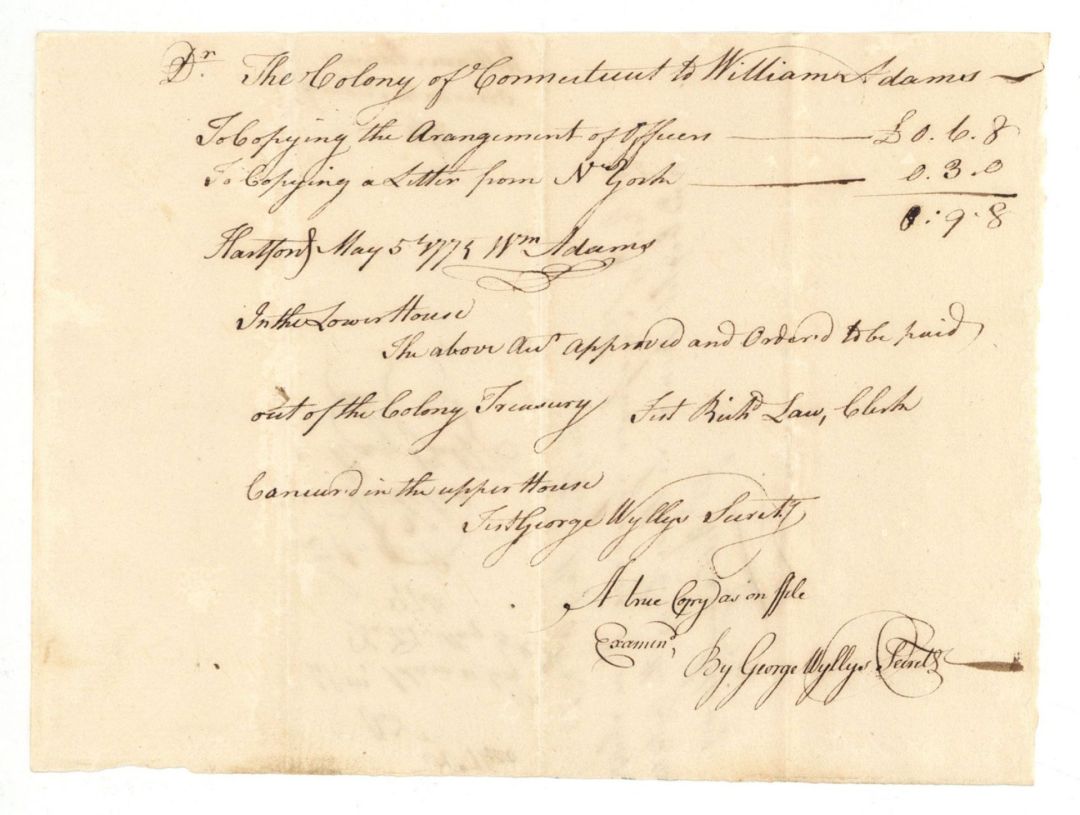 Dr. The Colony of Connecticut to William Adams
To Copying the Arangement of Officers £0.6.8
To Copying a Letter from N. York 0.3.0
0.9.8
Hartford May 5t. 1775 Wm Adams
In the Lower House
The above Act. approved and Order'd to be paid
out of the Colony Treasury Test Richd Law, Clerk
Concur'd in the upper House
Test George Wyllys Secrety
A true Copy as on file
Examind,
By George Wyllys Secrety